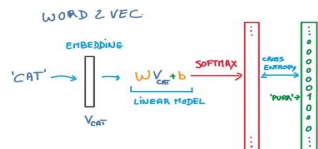 WORD 2 VEC
EMBEDDING
'CAT'
V CAT
W V CAT + b
LINEAR MODEL
SOFTMAX
CROSS
ENTROPY
'PURR'
0
0
0
0
0
1
0
0
0